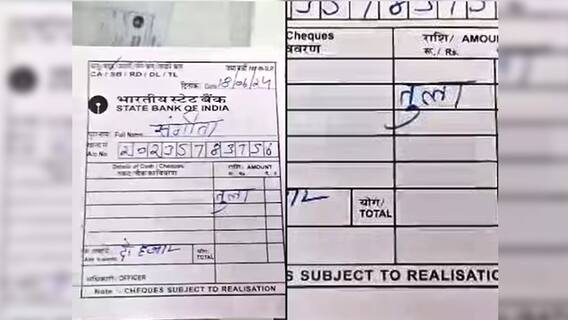 CA / SB / RD / DL / TL
दिनांक Date 18/06/24
भारतीय स्टेट बैंक
STATE BANK OF INDIA
Full Name संगीता
A/c No. 20235783756
Details of Cash / Cheques
राशि/ AMOUNT
तुला
दो हजार
योग/
TOTAL
अधिकारी/ OFFICER
Note :- CHEQUES SUBJECT TO REALISATION
Cheques
विवरण
राशि/ AMOU
रू./ Rs.
तुला
योग/
TOTAL
S SUBJECT TO REALISATIO